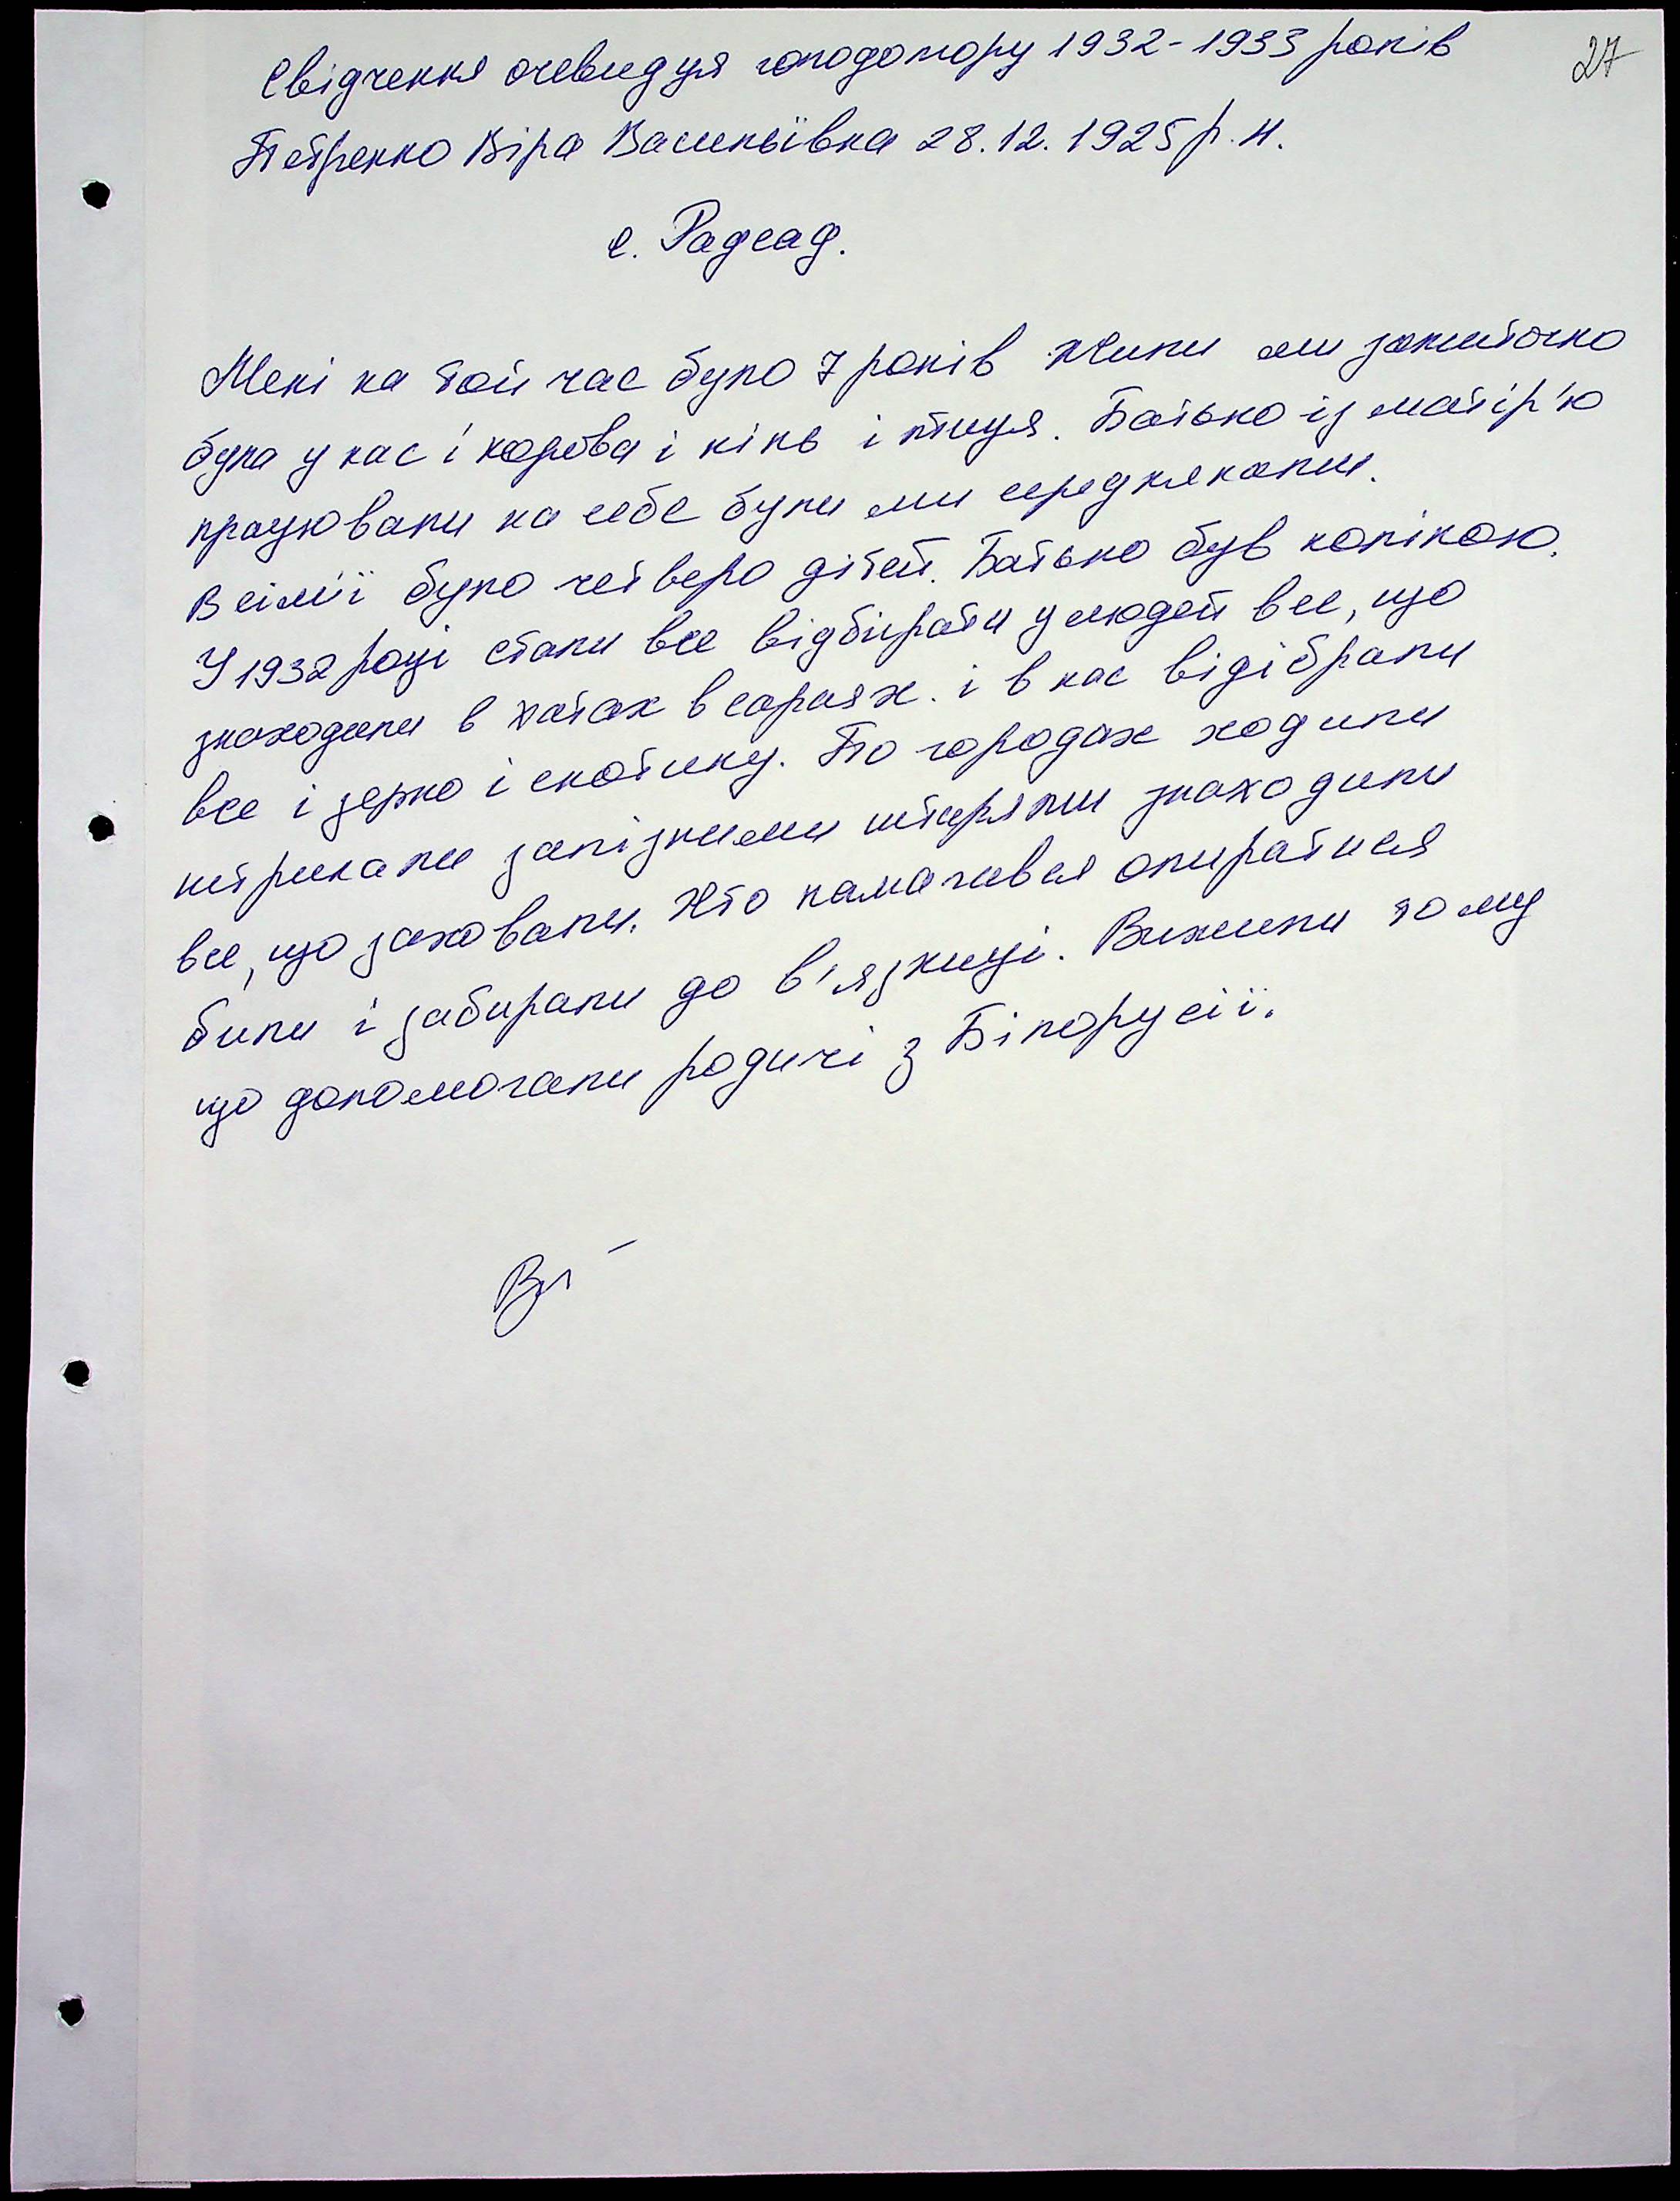 27
Свідчення очевидця голодомору 1932-1933 років
Петренко Віра Васильївна 28.12.1925 р.н.
с. Радсад.
Мені на той час було 7 років жили ми зажиточно
була у нас і корова і кінь і птиця. Батько із матір'ю
працювали на себе були ми середняками.
В сім'ї було четверо дітей. Батько був калікою.
У 1932 році стали все відбирати у людей все, що
знаходили в хатах в сараях. і в нас відібрали
все і зерно і скотину. По городах ходили
штрикали залізними штирями знаходили
все, що заховали. Хто намагився опиратися
били і забирали до в'язниці. Вижили тому
що допомогали родичі з Білорусії.